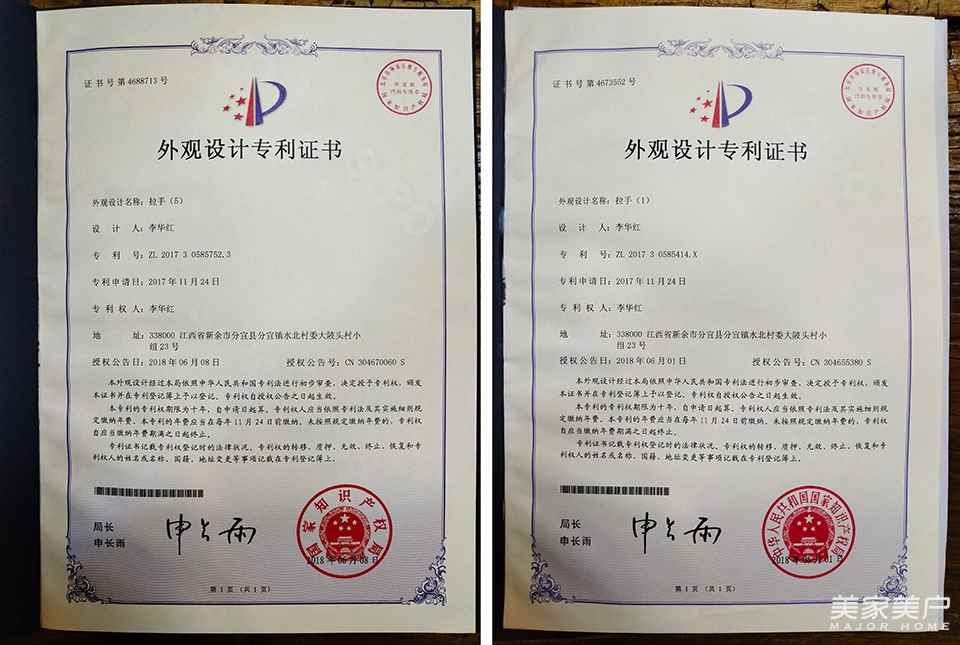 证书号第4688713号
外观设计专利证书
外观设计名称：拉手（5）
设 计 人：李华红
专 利 号：ZL 2017 3 0585752.3
专利申请日：2017年11月24日
专 利 权 人：李华红
地 址：338000 江西省新余市分宜县分宜镇水北村委大陂头村小
组23号
授权公告日：2018年06月08日 授权公告号：CN 304670060 S
本外观设计经过本局依照中华人民共和国专利法进行初步审查，决定授予专利权，颁发
本证书并在专利登记簿上予以登记。专利权自授权公告之日起生效。
本专利的专利权期限为十年，自申请日起算。专利权人应当依照专利法及其实施细则规
定缴纳年费。本专利的年费应当在每年11月24日前缴纳。未按照规定缴纳年费的，专利权
自应当缴纳年费期满之日起终止。
专利证书记载专利权登记时的法律状况。专利权的转移、质押、无效、终止、恢复和专
利权人的姓名或名称、国籍、地址变更等事项记载在专利登记簿上。
局长
申长雨
申长雨
国家知识产权局
2018年06月08日
第1页（共1页）
证书号第4673552号
外观设计专利证书
外观设计名称：拉手（1）
设 计 人：李华红
专 利 号：ZL 2017 3 0585414.X
专利申请日：2017年11月24日
专 利 权 人：李华红
地 址：338000 江西省新余市分宜县分宜镇水北村委大陂头村小
组23号
授权公告日：2018年06月01日 授权公告号：CN 304655380 S
本外观设计经过本局依照中华人民共和国专利法进行初步审查，决定授予专利权，颁发
本证书并在专利登记簿上予以登记。专利权自授权公告之日起生效。
本专利的专利权期限为十年，自申请日起算。专利权人应当依照专利法及其实施细则规
定缴纳年费。本专利的年费应当在每年11月24日前缴纳。未按照规定缴纳年费的，专利权
自应当缴纳年费期满之日起终止。
专利证书记载专利权登记时的法律状况。专利权的转移、质押、无效、终止、恢复和专
利权人的姓名或名称、国籍、地址变更等事项记载在专利登记簿上。
局长
申长雨
申长雨
中华人民共和国国家知识产权局
2018年06月01日
第1页（共1页）
美家美户
MAJOR HOME